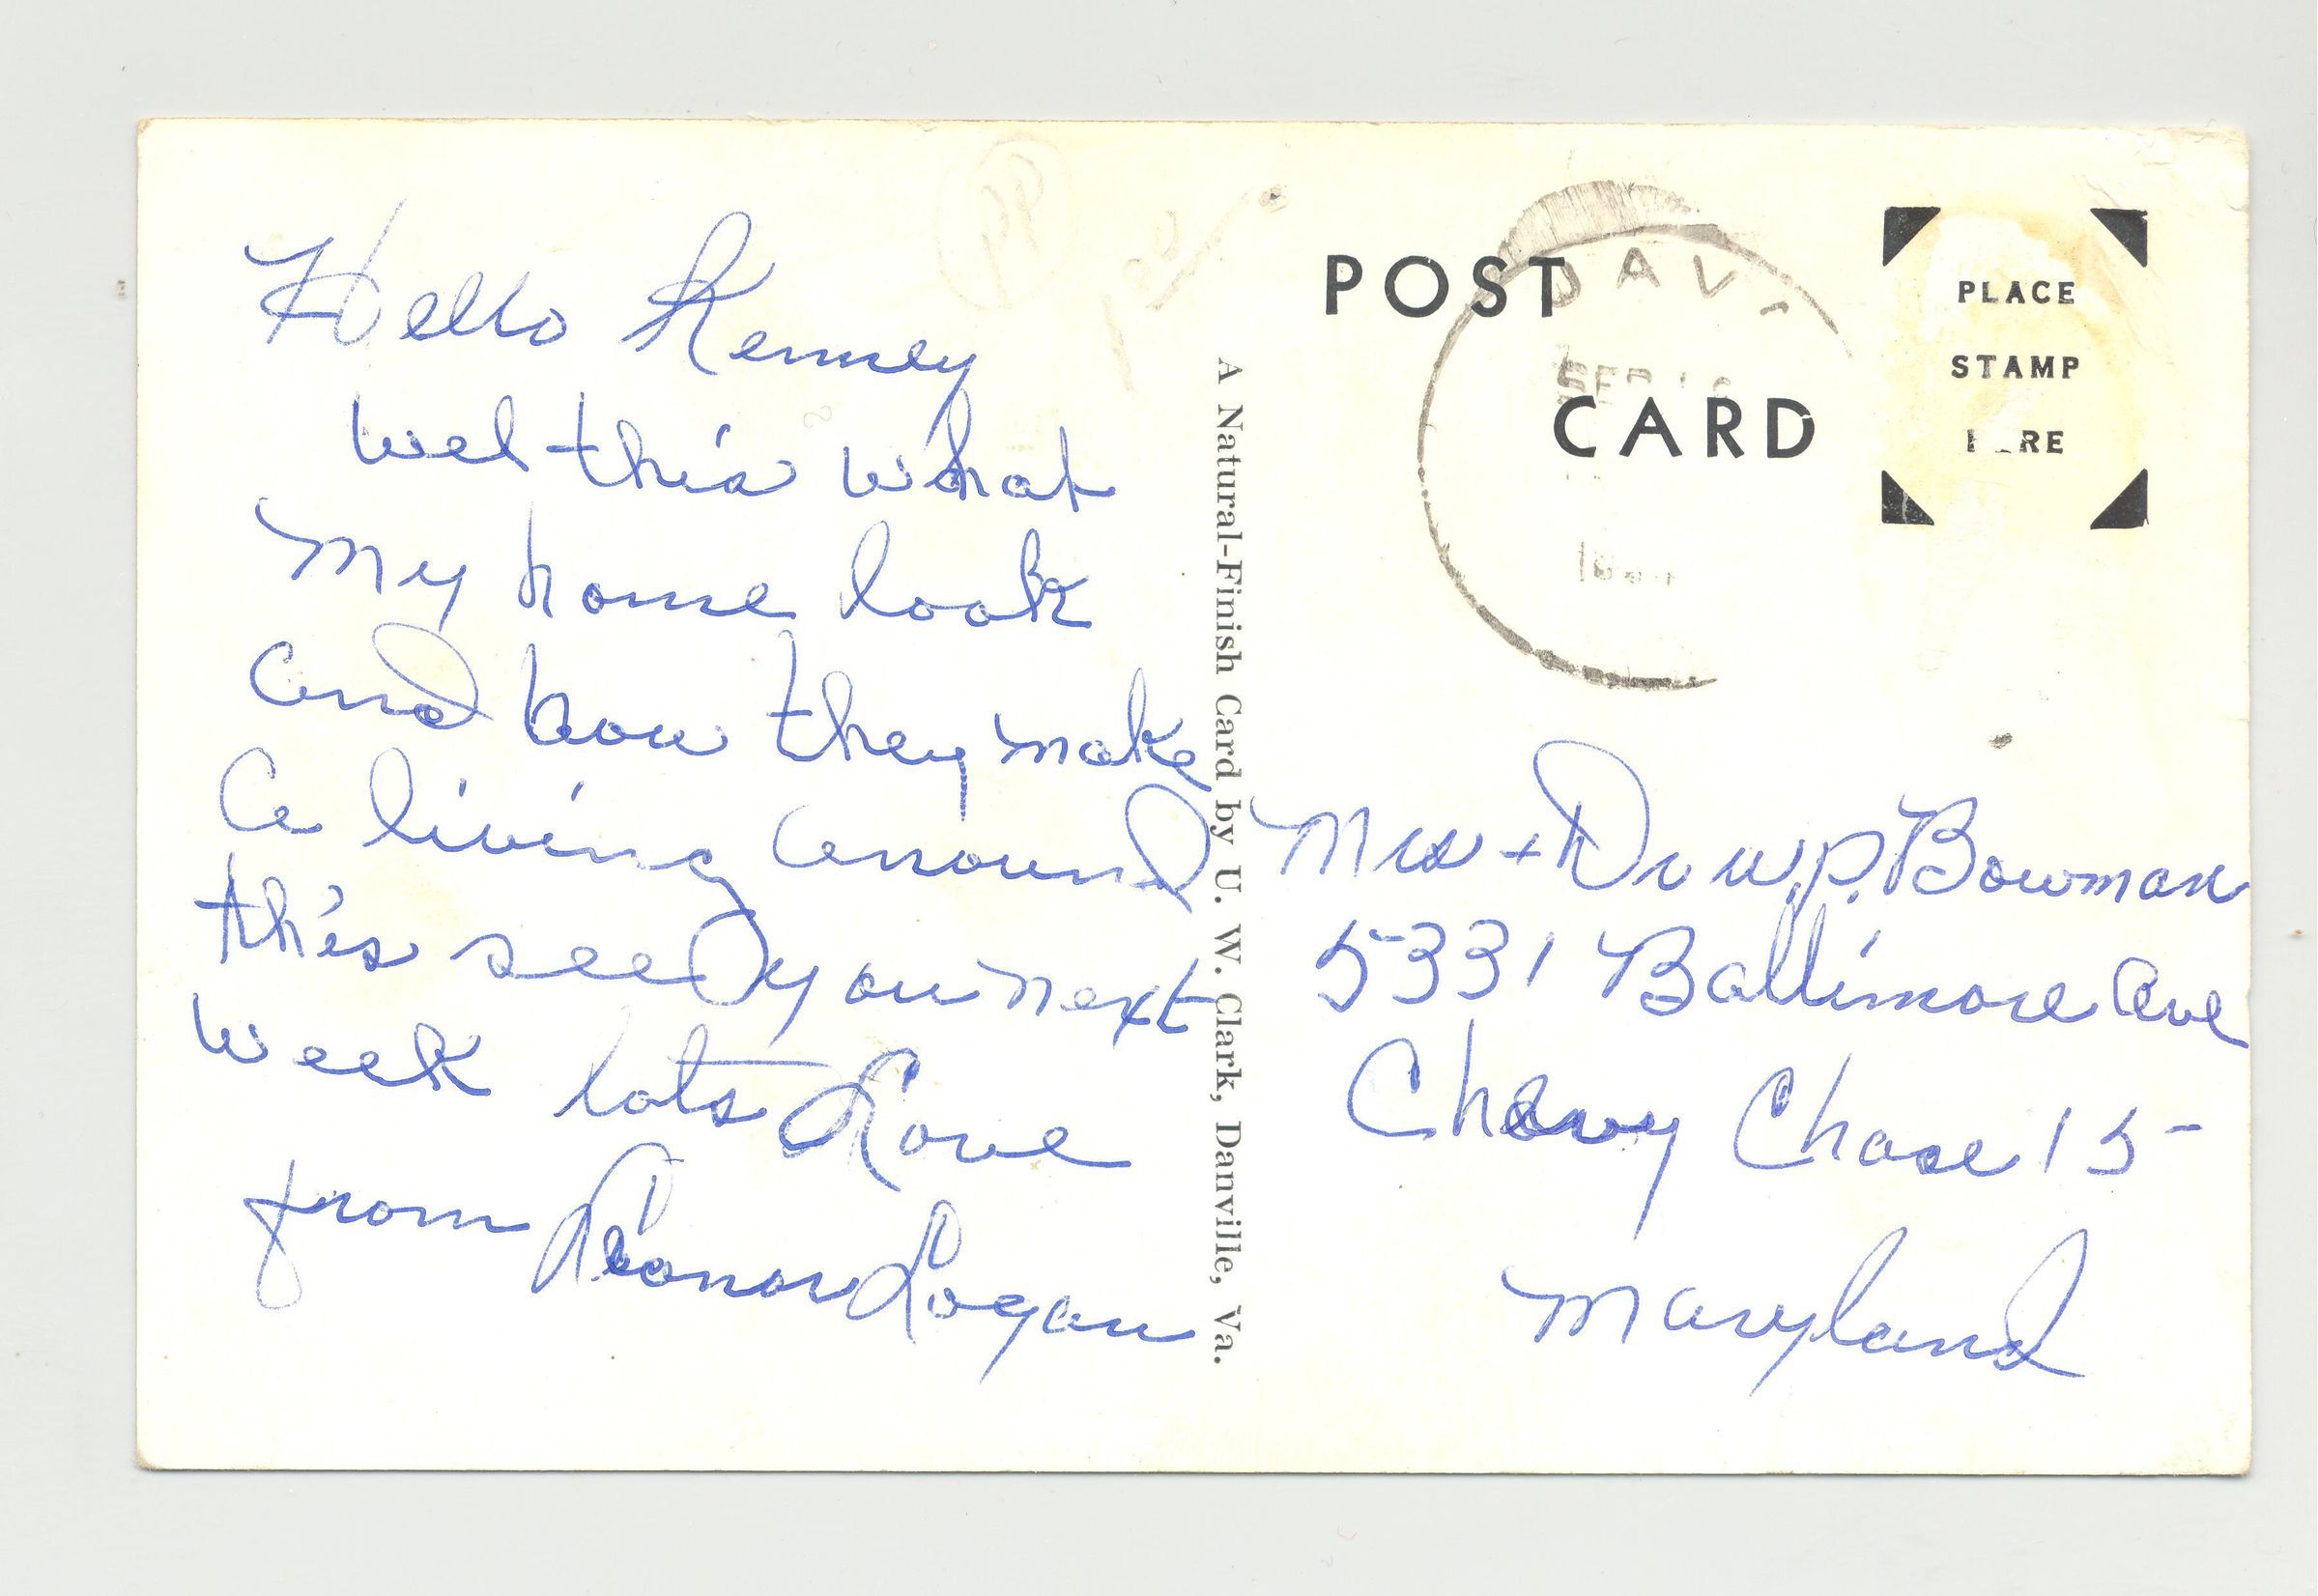 Hello Kenney
wel this what
my home look
and how they make
a living around
this see you next
week lots Love
from Leonar Logan
A Natural-Finish Card by U. W. Clark, Danville, Va.
POST
CARD
DAV
SEP
PLACE
STAMP
Mrs + Dr W.P. Bowman
5331 Baltimore Ave
Chevy Chase 15
Maryland